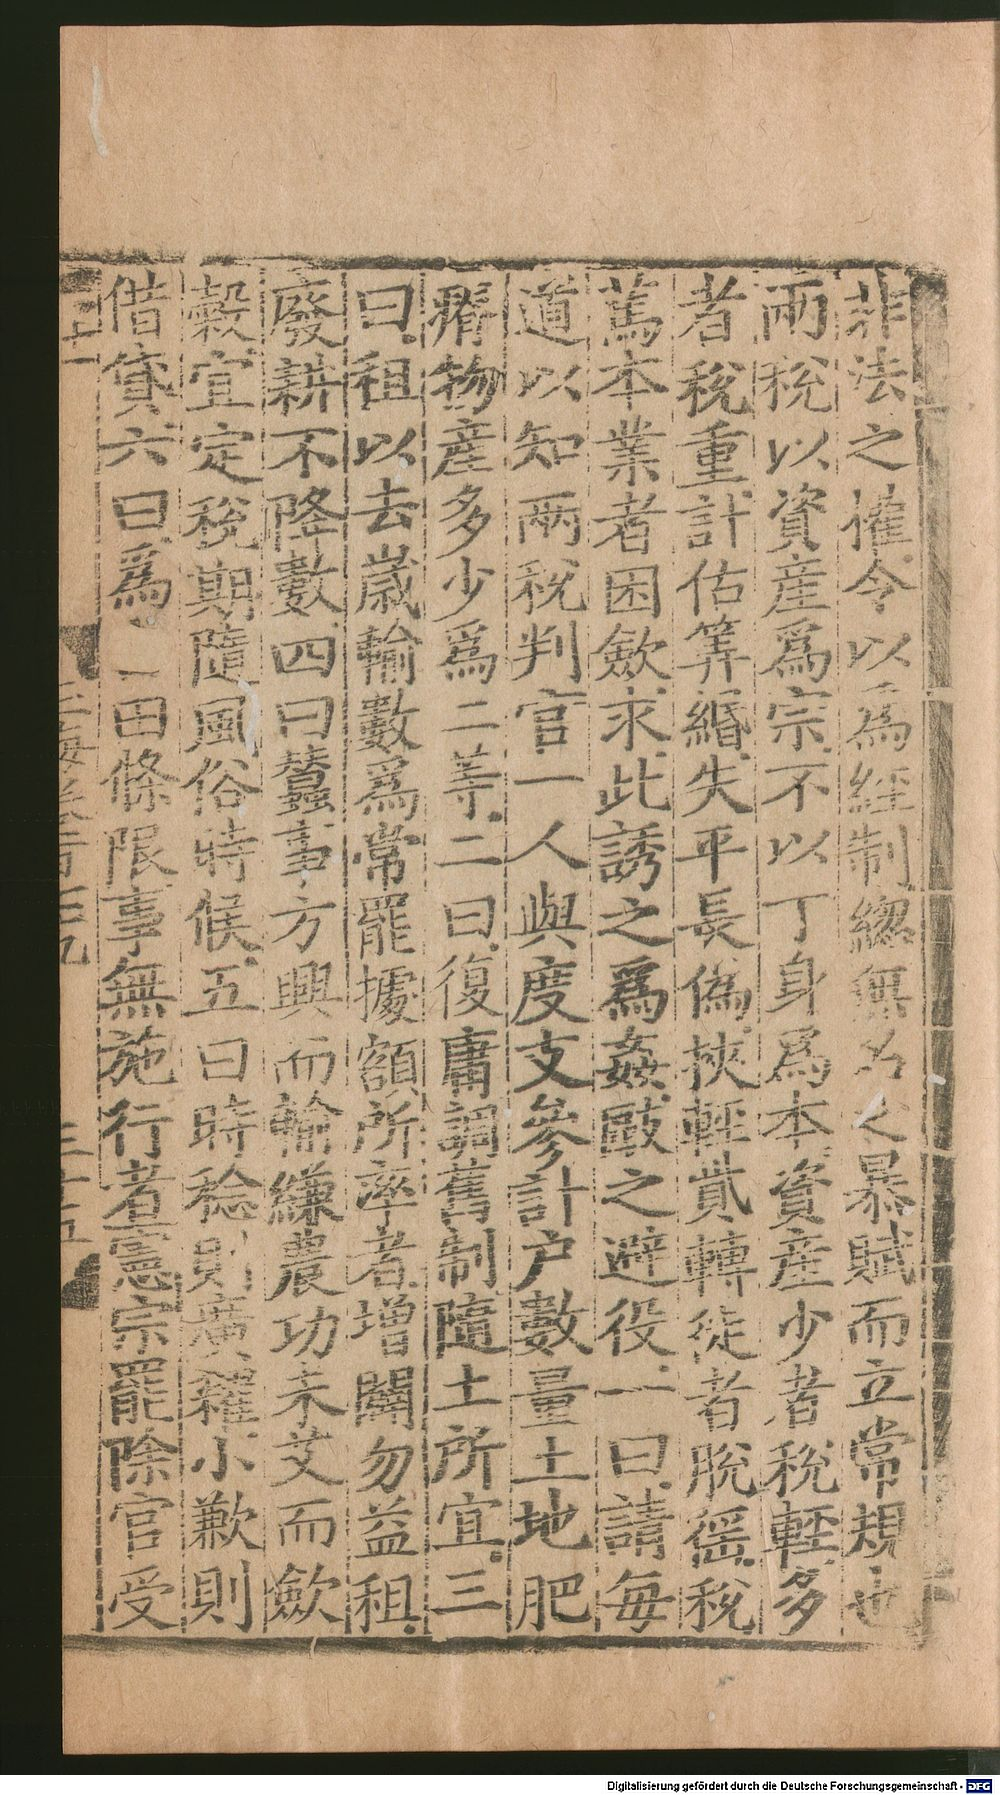 非法之搉今以爲經制緫無名之暴賦而立常規也
兩稅以資産爲宗不以丁身爲本資産少者稅輕多
者稅重計估筭緡失平長偽挾輕貲轉徙者脫徭稅
蔫本業者困歛求此誘之爲姦敺之避役一曰請每
道以知兩稅判官一人與度支參計户數量土地肥
瘠物産多少爲二等二曰復庸調舊制隨土所宜三
曰租以去歲輸數爲常罷據額所率者增闢勿益租
廢耕不降數四曰蠶事方興而輸縑農功未艾而歛
糓宜定稅期隨風俗時候五曰時稔則廣糴小歉則
借貸六曰爲田條限事無施行者憲宗罷除官受
Digitalisierung gefördert durch die Deutsche Forschungsgemeinschaft - DFG